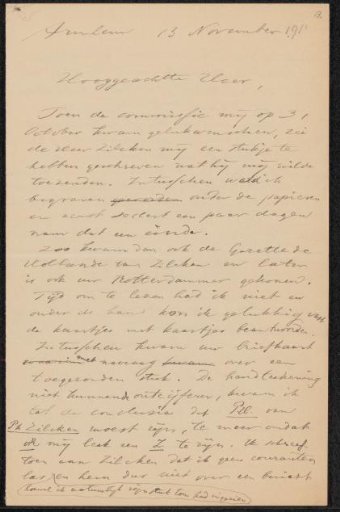 Arnhem 13 November 191
Hooggeachte Heer,
Toen de commissie mij op 31
October kwam gelukwenschen, zei
de Heer Zilcken mij een stukje te
hebben geschreven wat hij mij wilde
toezenden. Intusschen werd ik
begraven onder de papieren
en eerst sedert een paar dagen
nam dat een einde.
Zoo kwam dan ook de Gazette de
Hollande van Zilcken en later
is ook uw Rotterdammer gekomen.
Tijd om te lezen had ik niet en
onder de hand kon ik gelukkig
de kaartjes met kaartjes beantwoorden
Intusschen kwam uw briefkaart
met navraag over een
toegezonden stuk. De handteekening
niet kunnende ontcijferen, kwam ik
tot de conclusie dat Ph. van
Ph Zilcken moest zijn, te meer omdat
mij leek een Z te zijn. Ik schreef
toen aan Zilcken dat ik geen couranten
las en hem dus niet over een